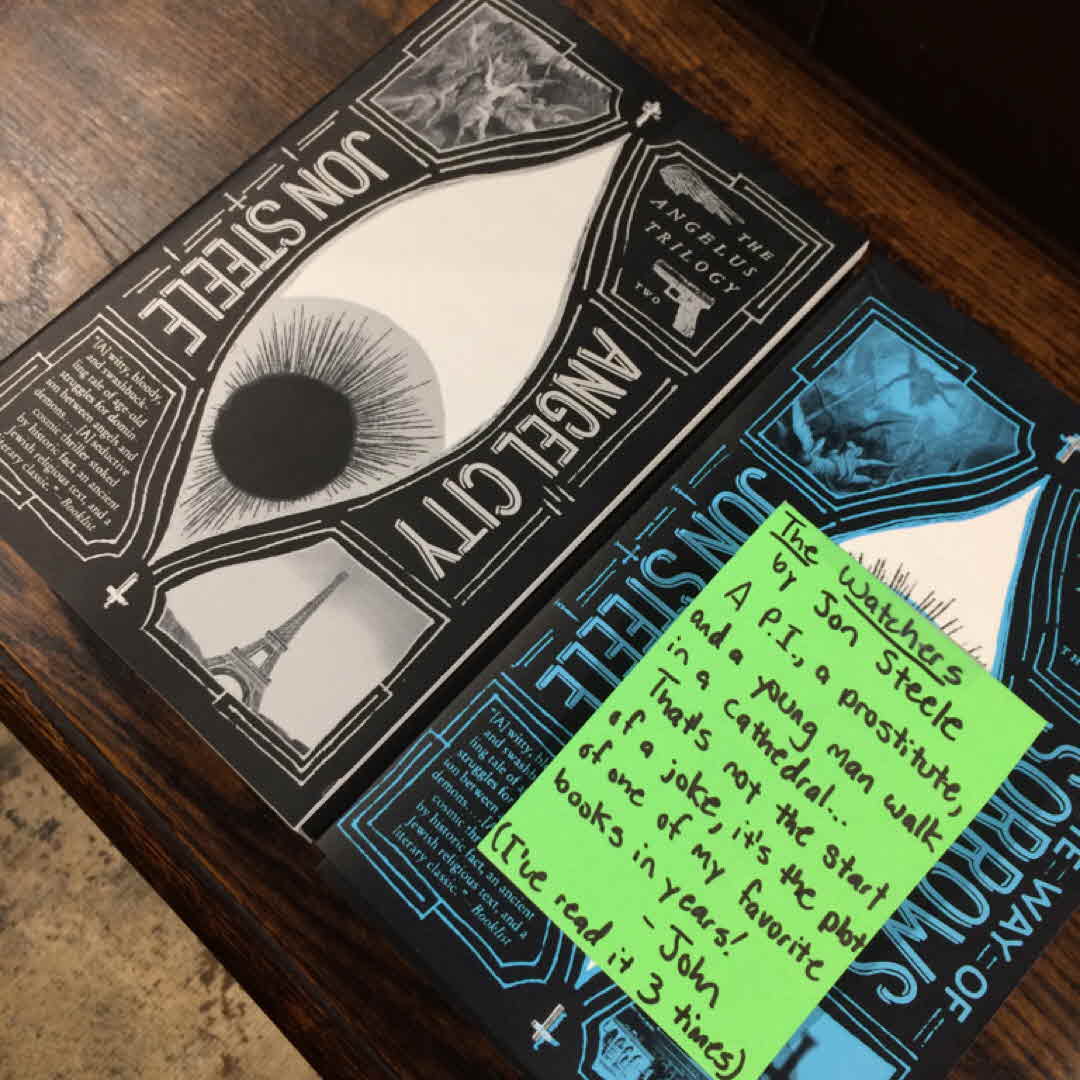 JON STEELE
THE
ANGELUS
TRILOGY
TWO
ANGEL CITY
"[A] witty, bloody,
and swashbuck-
ling tale of age-old
struggles for domin-
ion between angels and
demons. . . . [A] seductive
cosmic thriller stoked
by historic fact, an ancient
Jewish religious text, and a
literary classic." – Booklist
JON STEELE
WAY OF
SORROWS
"[A] witty, bl
and swashb
ling tale of
struggles for
ion between
demons. . . .
cosmic thr
by historic fact, an ancient
Jewish religious text, and a
literary classic." – Booklist
The Watchers
by Jon Steele
A P.I., a prostitute,
and a young man walk
in a cathedral...
That's not the start
of a joke, it's the plot
of one of my favorite
books in years!
- John
(I've read it 3 times)